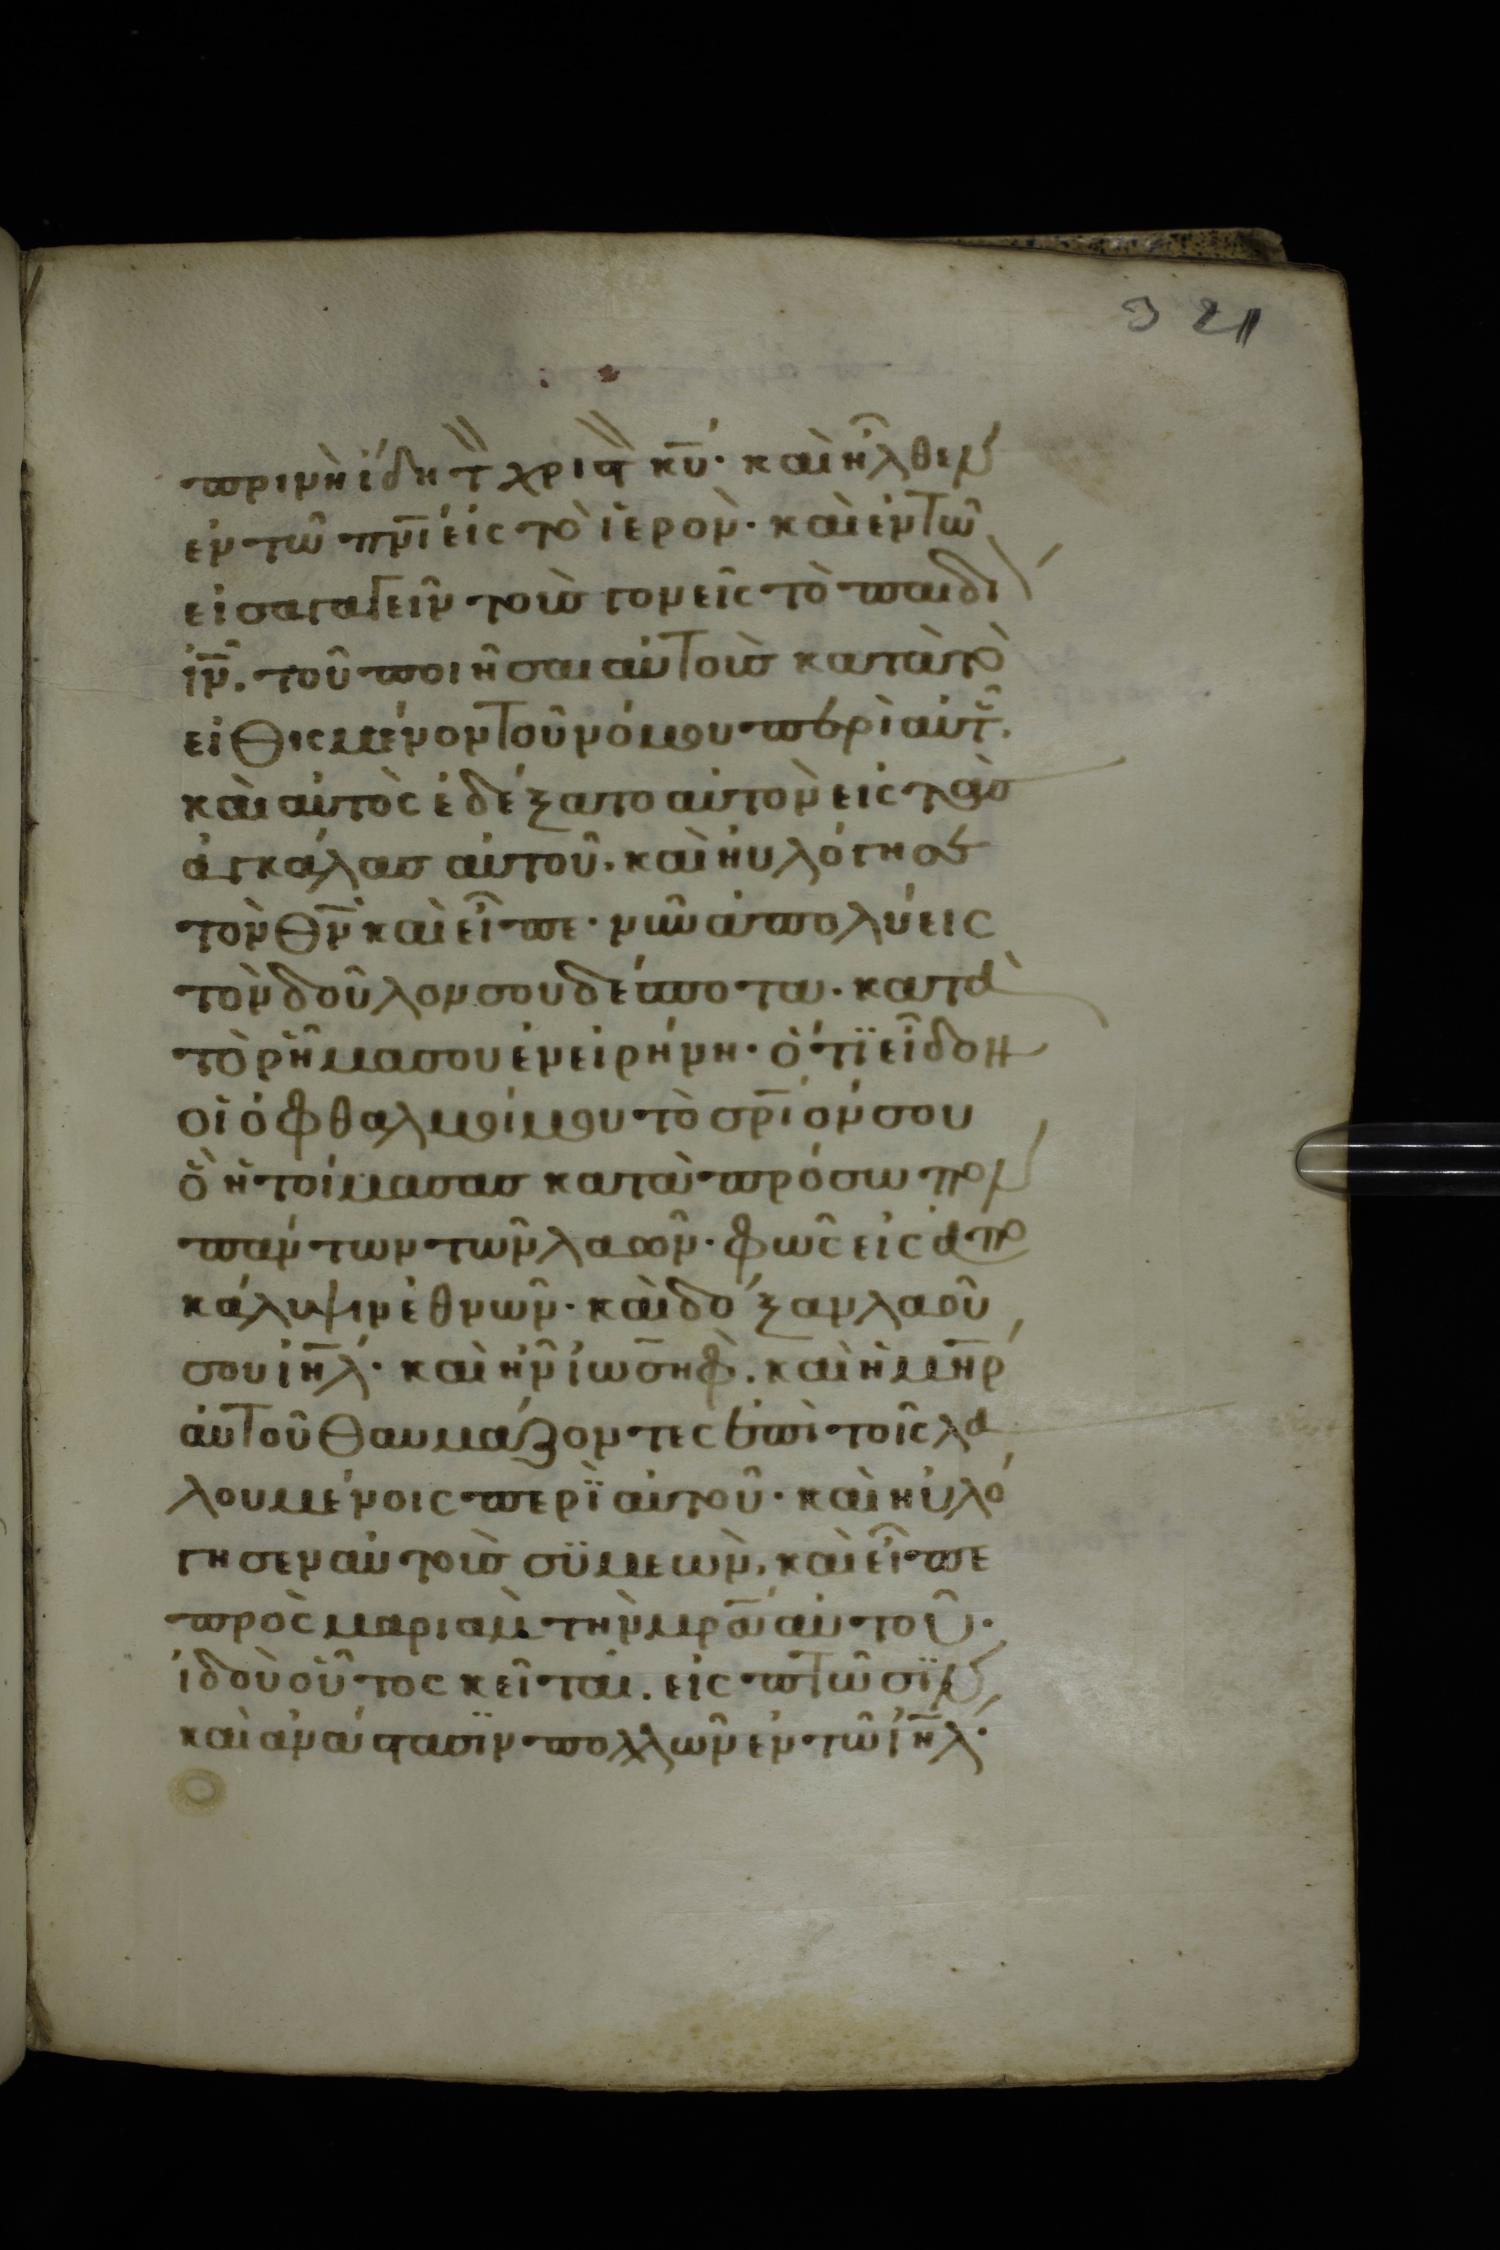 321
πριν ἢ ἴδῃ τ̀ χριστ̀ κ̅υ̅· καὶ ἦλθεν
ἐν τῶ π̅ν̅ι̅ εἰς τὸ ἱερὸν· καὶ ἐν τῶ
εἰσαγαγεῖν τοὺς γονεῖς τὸ παιδί(ον)
ι̅ν̅. τοῦ ποιῆσαι αὐτοὺς κατὰ τὸ
εἰθισμένον τοῦ νόμου περὶ αὐτ̃.
καὶ αὐτὸς ἐδέξατο αὐτὸν εἰς τὰς
ἀγκάλας αὐτοῦ. καὶ ηὐλόγησε
τὸν θ̅ν̅ καὶ εἶπε· νῦν ἀπολύεις
τὸν δοῦλον σου δέσποτα. κατὰ
τὸ ῥῆμα σου ἐν εἰρήνη· ὅτϊ εἶδον
οἱ ὀφθαλμοί μου τὸ σ̅ρ̅ιόν σου
ὃ ἡτοίμασας κατὰ πρόσωπον
πάντων τῶν λαῶν· φῶς εἰς ἀπο
κάλυψιν ἐθνῶν· καὶ δόξαν λαοῦ
σου ι̅η̅λ̅· καὶ ἦν ἰωσὴφ. καὶ ἡ μ̅η̅ρ̅
αὐτοῦ θαυμάζοντες ἐπὶ τοῖς λα
λουμένοις περὶ αὐτοῦ· καὶ ηὐλό
γησεν αὐτοὺς σϋμεὼν. καὶ εἶπε
πρὸς μαριὰμ τὴν μ̅ρ̅α̅ αὐτοῦ·
ἰδοὺ οὗτος κεῖται. εἰς πτῶσϊν
καὶ ἀνάστασϊν πολλῶν ἐν τῶ ι̅η̅λ̅·